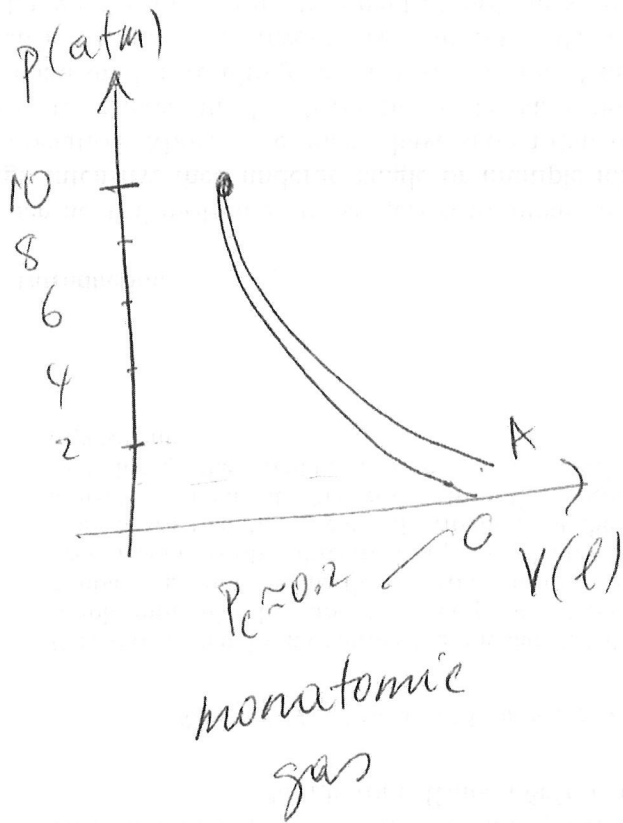 P(atm)
10
8
6
4
2
A
C
V(l)
Pc≈0.2
monatomic
gas